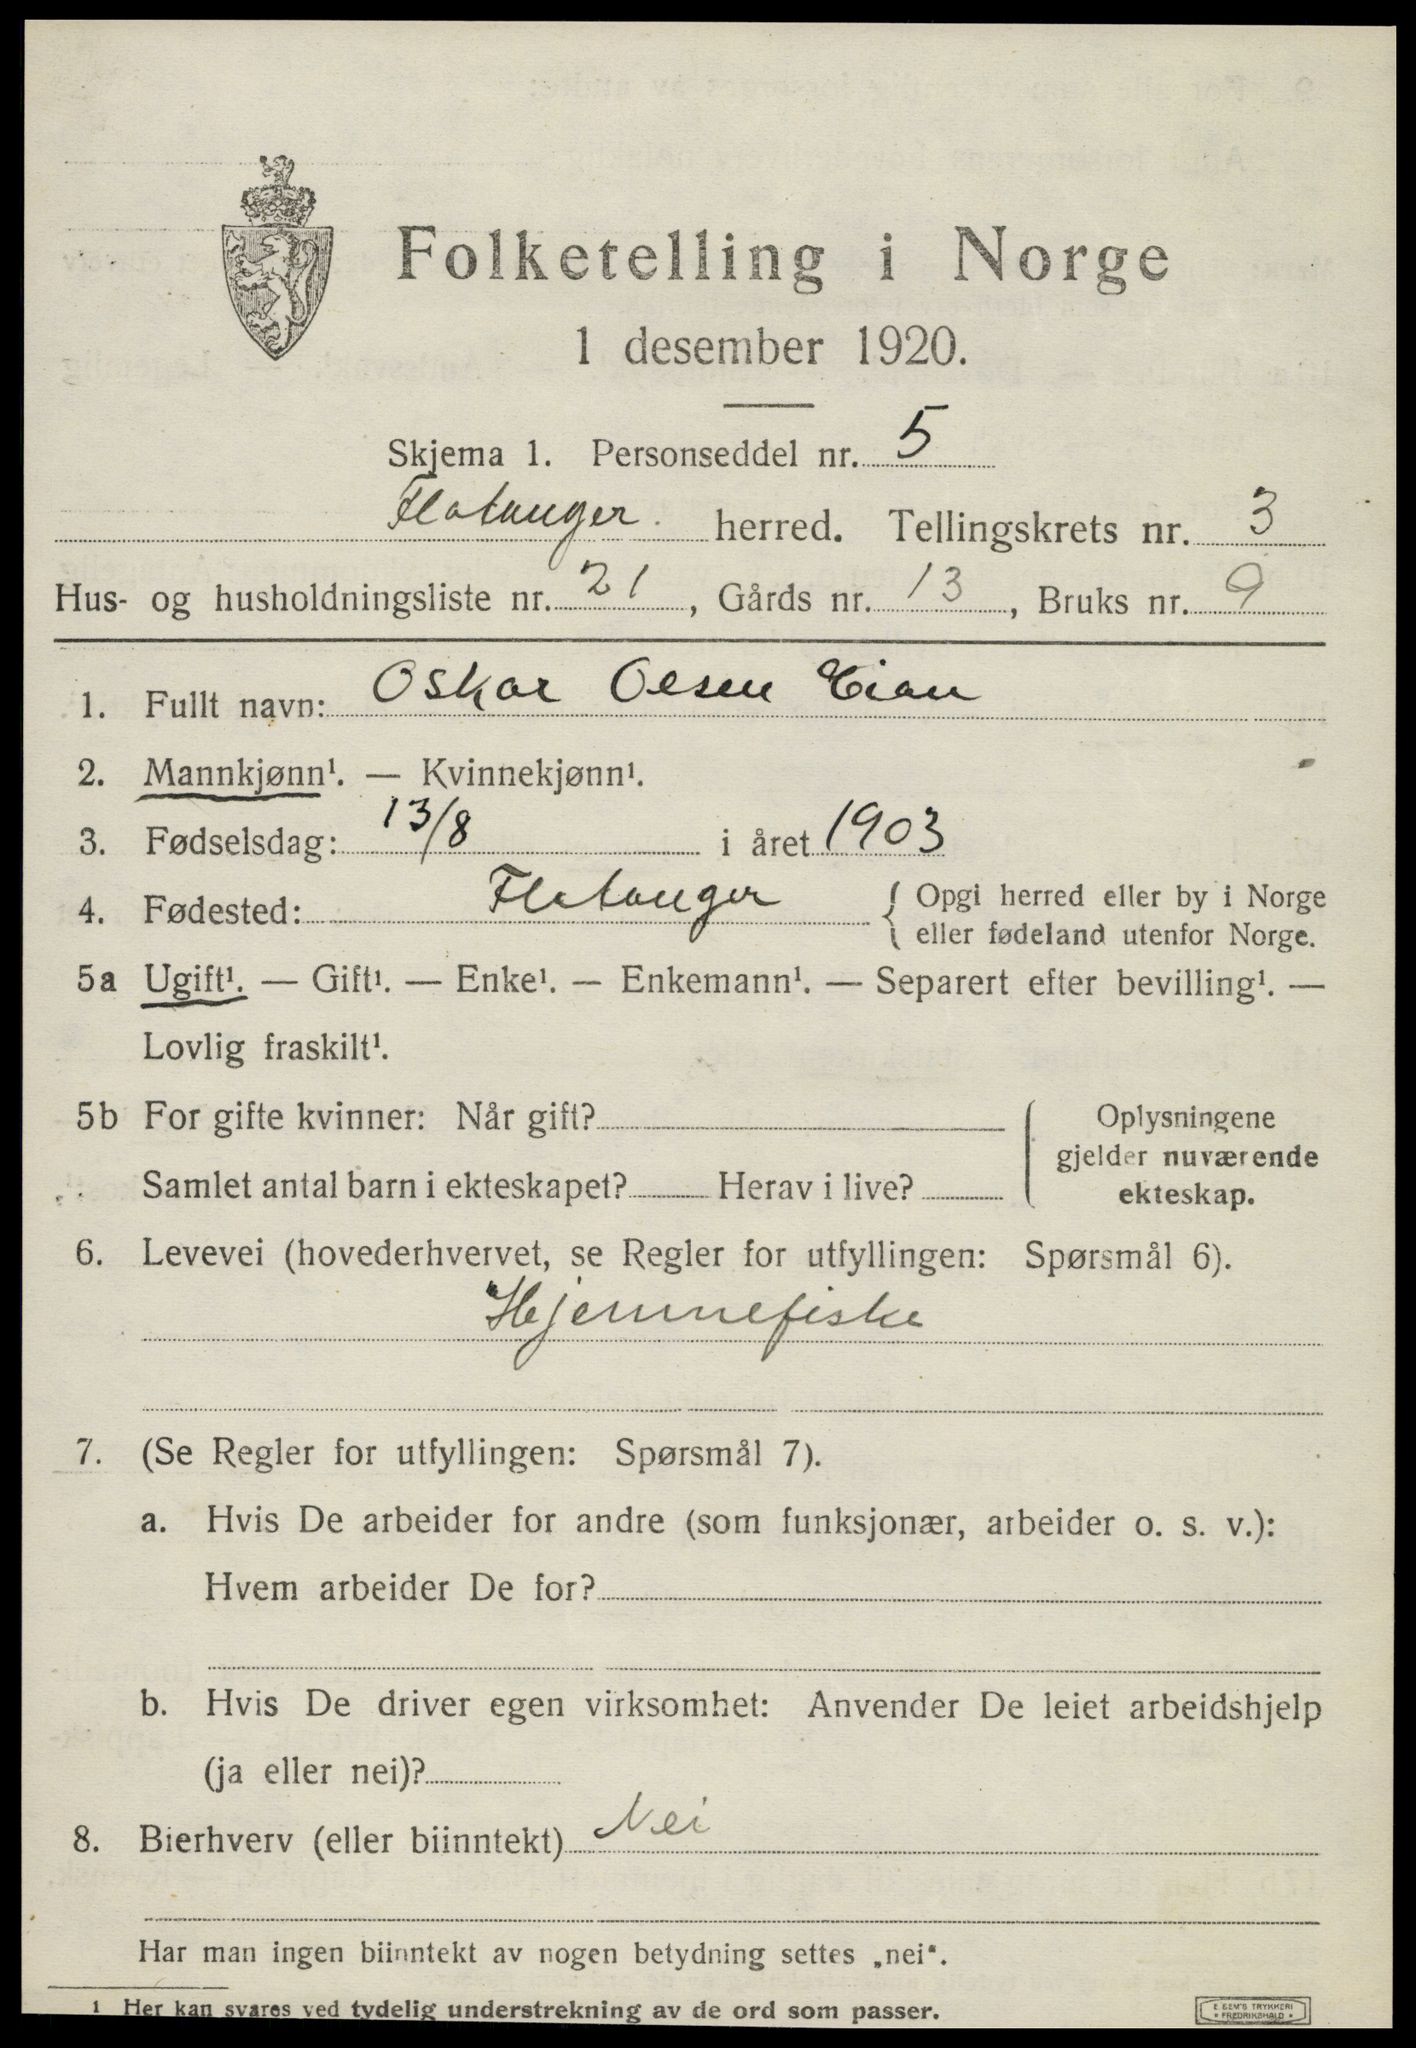 Folketelling i Norge
1 desember 1920.
Skjema 1. Personseddel nr. 5
Flatanger. herred. Tellingskrets nr. 3
Hus- og husholdningsliste nr. 21, Gårds nr. 13, Bruks nr. 9
1. Fullt navn: Oskar Olsen Eian
2. Mannkjønn¹. — Kvinnekjønn¹.
3. Fødselsdag: 13/8 i året 1903
4. Fødested: Flatanger { Opgi herred eller by i Norge
eller fødeland utenfor Norge.
5a Ugift¹. — Gift¹. — Enke¹. — Enkemann¹. — Separert efter bevilling¹. —
Lovlig fraskilt¹.
5b For gifte kvinner: Når gift?
Samlet antal barn i ekteskapet? Herav i live?
Oplysningene
gjelder nuværende
ekteskap.
6. Levevei (hovederhvervet, se Regler for utfyllingen: Spørsmål 6).
Hjemmefiske
7. (Se Regler for utfyllingen: Spørsmål 7).
a. Hvis De arbeider for andre (som funksjonær, arbeider o. s. v.):
Hvem arbeider De for?
b. Hvis De driver egen virksomhet: Anvender De leiet arbeidshjelp
(ja eller nei)?
8. Bierhverv (eller biinntekt) Nei
Har man ingen biinntekt av nogen betydning settes „nei“.
¹ Her kan svares ved tydelig understrekning av de ord som passer.
E. SEM'S TRYKKERI
• FREDRIKSHALD •